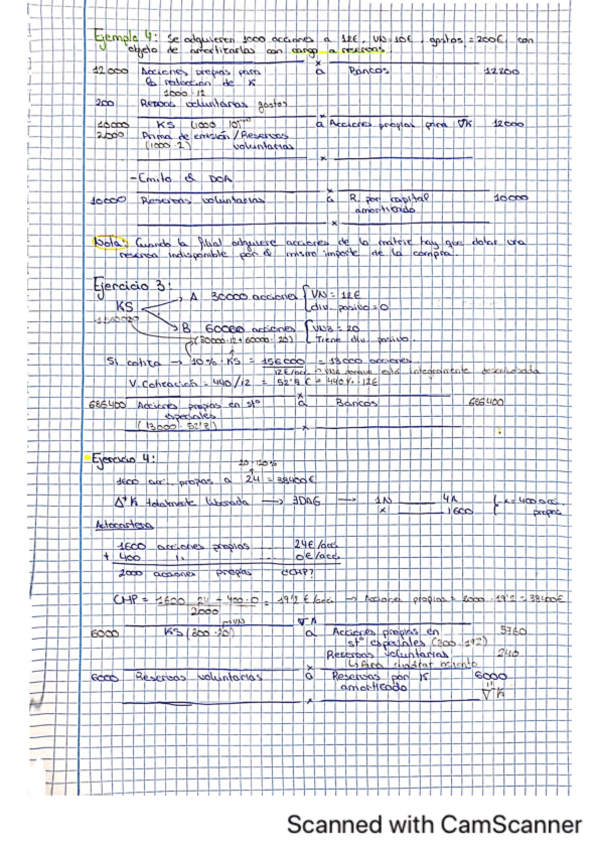 Ejemplo 4: Se adquieren 1000 acciones a 12€, VN=10€, gastos = 200€, con
objeto de amortizarlas con cargo a reservas.
12000 Acciones propias para a Bancos 12200
la reducción de K
1000·12
200 Reservas voluntarias gastos
10000 KS (1000·10) a Acciones propias para ∇K 12000
2000 Prima de emisión / Reservas
(1000·2) voluntarias
10000 Reservas voluntarias a R. por capital 10000
amortizado
Nota: Cuando la filial adquiere acciones de la matriz hay que dotar una
reserva indisponible por el mismo importe de la compra.
Ejercicio 3:
KS → A 30000 acciones { VN = 12€
div. pasivo = 0
→ B 60000 acciones { VNB = 20
Tiene div. pasivo.
(30000·12+60000·20)
Si cotiza → 10% · KS = 156000 = 13000 acciones
12€/acc.
V. Cotización = 440/12 = 52'8€ = 440% · 12€
686400 Acciones propias en stº a Bancos 686400
especiales
(13000·52'8)
Ejercicio 4:
20·120%
1600 acc. propias a 24 = 38400€
Δ+K totalmente liberada → 1N 4A
x 1600 { x=400 acc.
propias
Autocartera
1600 acciones propias 24€/acc.
+ 400 0€/acc.
2000 acciones propias ¿CHP?
CHP = 1600·24 + 400·0 = 19'2€/acc → Acciones propias = 2000·19'2 = 38400€
2000
6000 KS (300·20) a Acciones propias en 5760
stº especiales (300·19'2)
Reservas voluntarias 240
↳ Para cuadrar asiento
6000 Reservas voluntarias a Reservas por K 6000
amortizado
∇K
Scanned with CamScanner